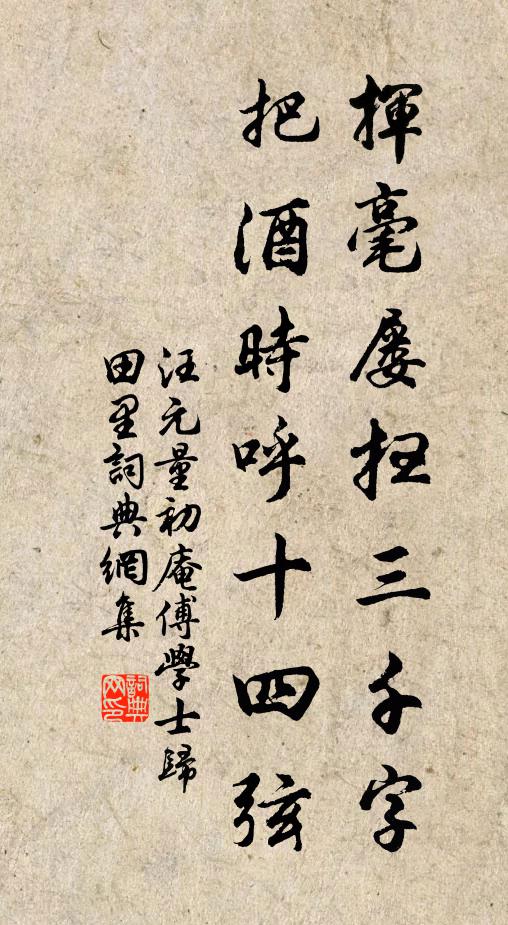 揮毫屡掃三千字
把酒時呼十四弦
汪元量初庵傅學士歸
田里詞典網集
詞典
网印